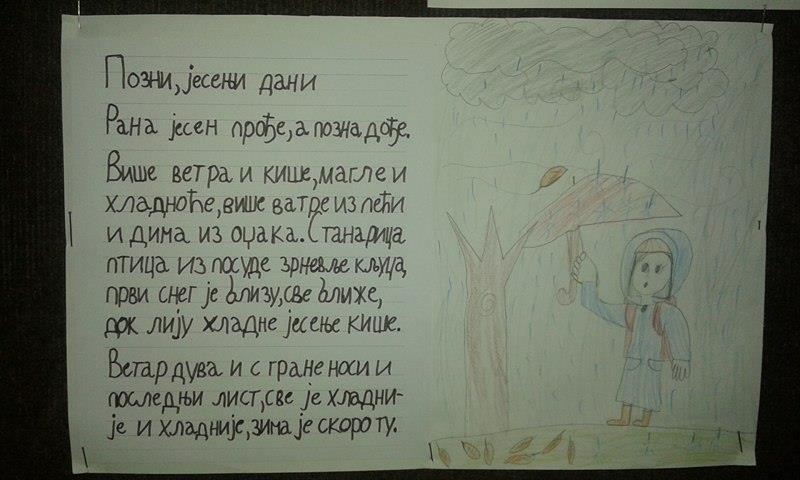 Позни, јесењи дани
Рана јесен прође, а позна дође.
Више ветра и кише, магле и
хладноће, више ватре из пећи
и дима из оџака. Станарица
птица из посуде зрневље кљуца,
први снег је близу, све ближе,
док лију хладне јесење кише.
Ветар дува и с гране носи и
последњи лист, све је хладни-
је и хладније, зима је скоро ту.